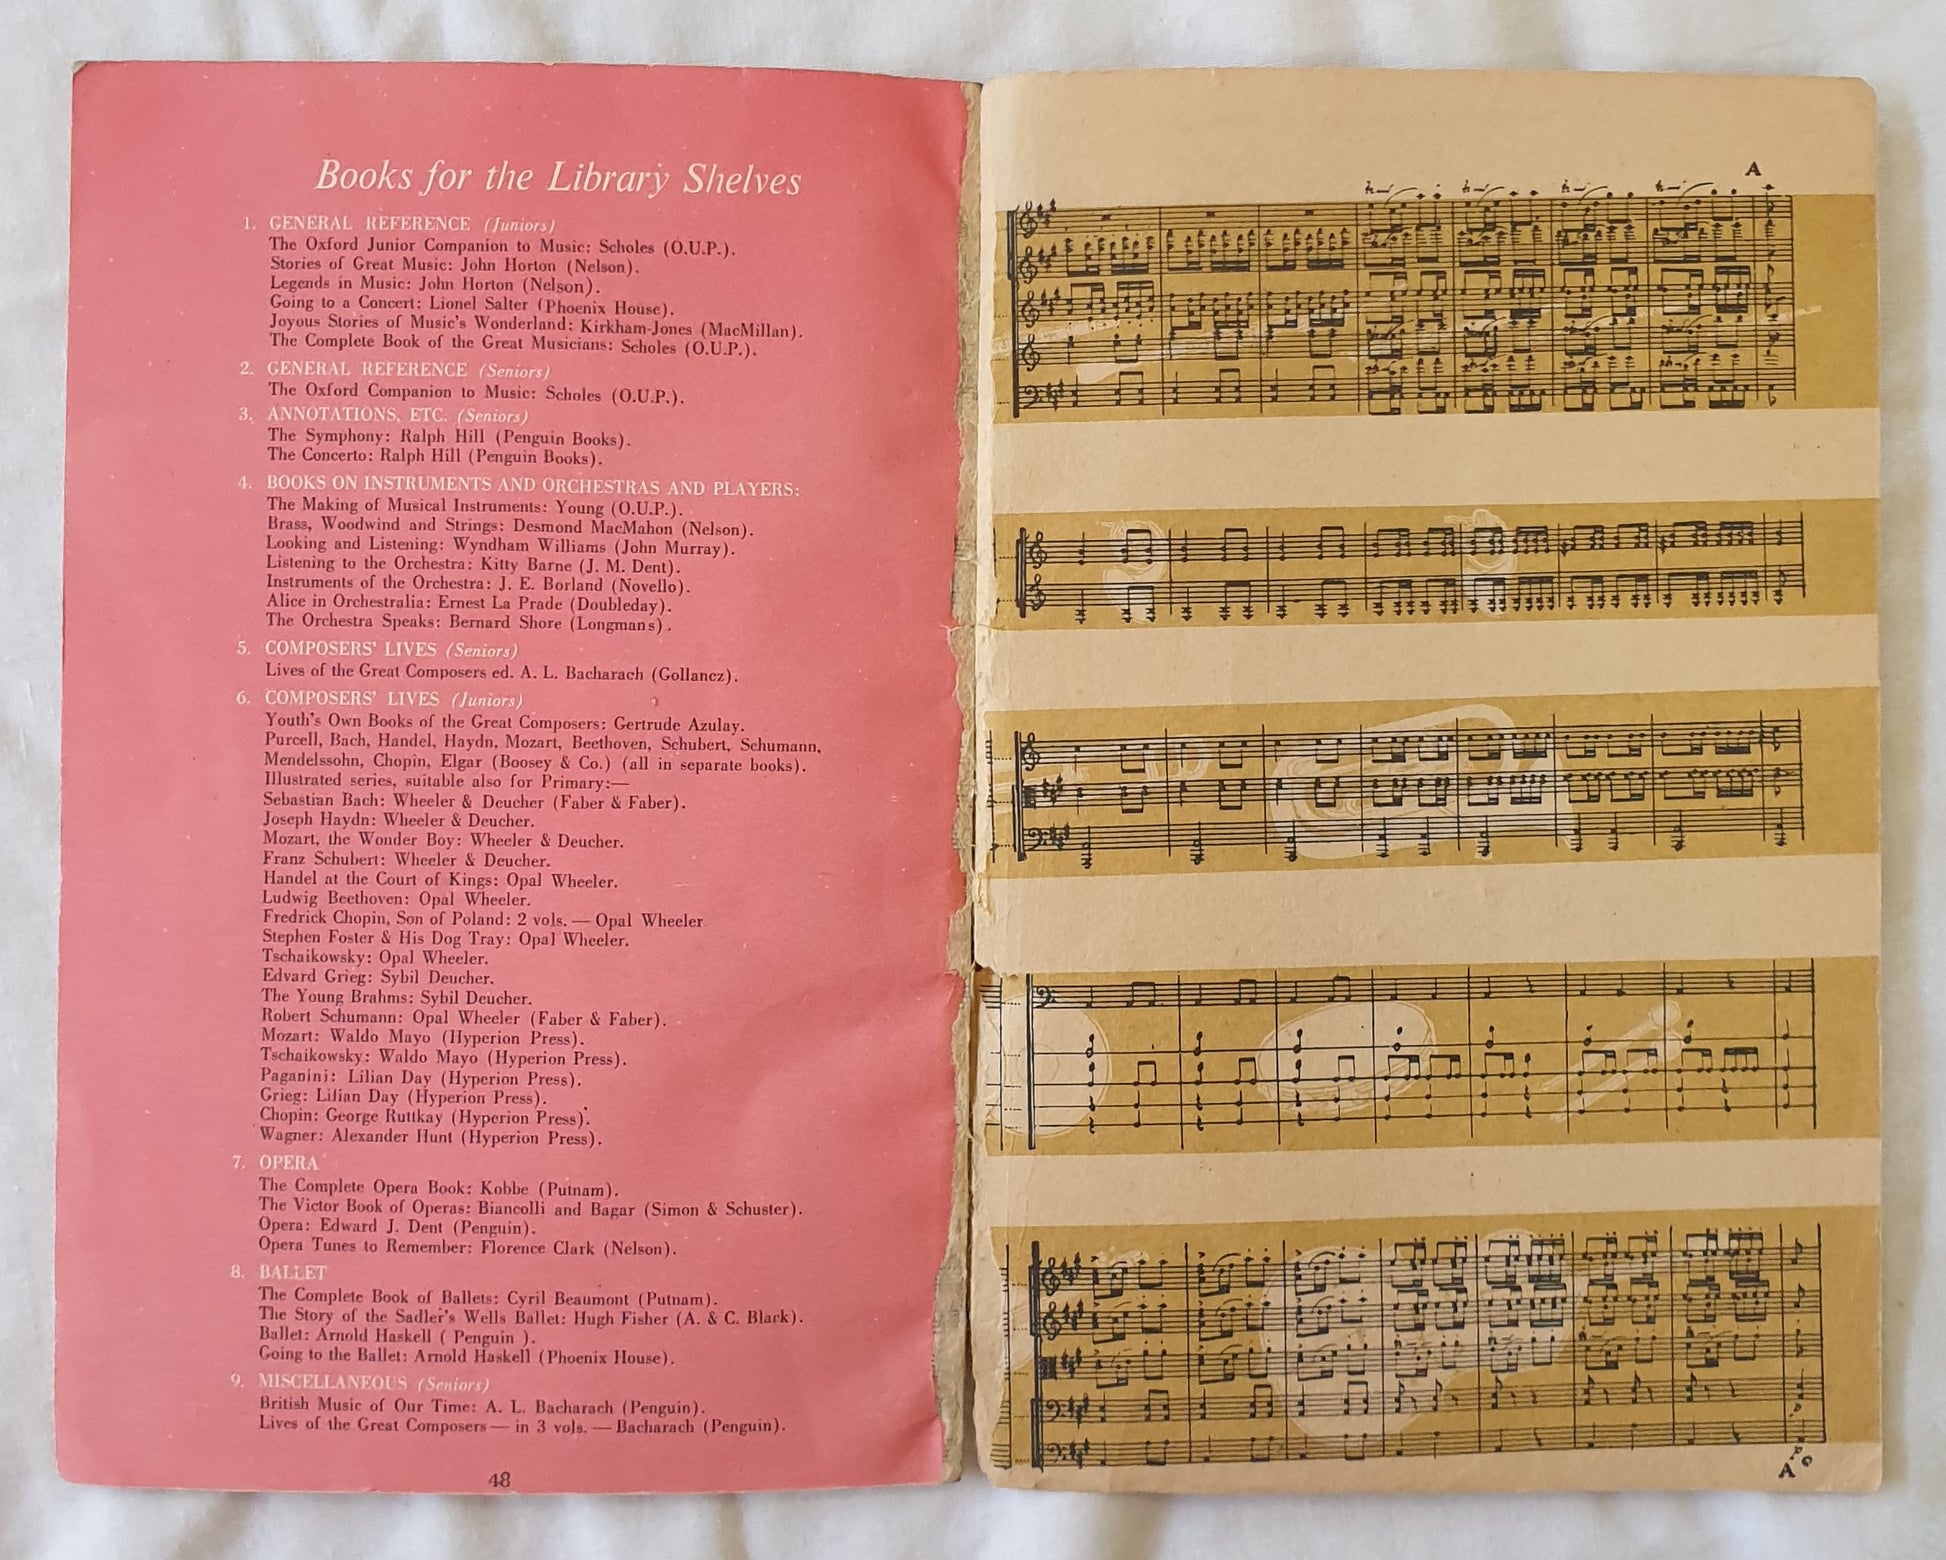 Books for the Library Shelves
1. GENERAL REFERENCE (Juniors)
The Oxford Junior Companion to Music: Scholes (O.U.P.).
Stories of Great Music: John Horton (Nelson).
Legends in Music: John Horton (Nelson).
Going to a Concert: Lionel Salter (Phoenix House).
Joyous Stories of Music's Wonderland: Kirkham-Jones (MacMillan).
The Complete Book of the Great Musicians: Scholes (O.U.P.).
2. GENERAL REFERENCE (Seniors)
The Oxford Companion to Music: Scholes (O.U.P.).
3. ANNOTATIONS, ETC. (Seniors)
The Symphony: Ralph Hill (Penguin Books).
The Concerto: Ralph Hill (Penguin Books).
4. BOOKS ON INSTRUMENTS AND ORCHESTRAS AND PLAYERS:
The Making of Musical Instruments: Young (O.U.P.).
Brass, Woodwind and Strings: Desmond MacMahon (Nelson).
Looking and Listening: Wyndham Williams (John Murray).
Listening to the Orchestra: Kitty Barne (J. M. Dent).
Instruments of the Orchestra: J. E. Borland (Novello).
Alice in Orchestralia: Ernest La Prade (Doubleday).
The Orchestra Speaks: Bernard Shore (Longmans).
5. COMPOSERS' LIVES (Seniors)
Lives of the Great Composers ed. A. L. Bacharach (Gollancz).
6. COMPOSERS' LIVES (Juniors)
Youth's Own Books of the Great Composers: Gertrude Azulay.
Purcell, Bach, Handel, Haydn, Mozart, Beethoven, Schubert, Schumann,
Mendelssohn, Chopin, Elgar (Boosey & Co.) (all in separate books).
Illustrated series, suitable also for Primary:—
Sebastian Bach: Wheeler & Deucher (Faber & Faber).
Joseph Haydn: Wheeler & Deucher.
Mozart, the Wonder Boy: Wheeler & Deucher.
Franz Schubert: Wheeler & Deucher.
Handel at the Court of Kings: Opal Wheeler.
Ludwig Beethoven: Opal Wheeler.
Fredrick Chopin, Son of Poland: 2 vols. — Opal Wheeler
Stephen Foster & His Dog Tray: Opal Wheeler.
Tschaikowsky: Opal Wheeler.
Edvard Grieg: Sybil Deucher.
The Young Brahms: Sybil Deucher.
Robert Schumann: Opal Wheeler (Faber & Faber).
Mozart: Waldo Mayo (Hyperion Press).
Tschaikowsky: Waldo Mayo (Hyperion Press).
Paganini: Lilian Day (Hyperion Press).
Grieg: Lilian Day (Hyperion Press).
Chopin: George Ruttkay (Hyperion Press).
Wagner: Alexander Hunt (Hyperion Press).
7. OPERA
The Complete Opera Book: Kobbe (Putnam).
The Victor Book of Operas: Biancolli and Bagar (Simon & Schuster).
Opera: Edward J. Dent (Penguin).
Opera Tunes to Remember: Florence Clark (Nelson).
8. BALLET
The Complete Book of Ballets: Cyril Beaumont (Putnam).
The Story of the Sadler's Wells Ballet: Hugh Fisher (A. & C. Black).
Ballet: Arnold Haskell ( Penguin ).
Going to the Ballet: Arnold Haskell (Phoenix House).
9. MISCELLANEOUS (Seniors)
British Music of Our Time: A. L. Bacharach (Penguin).
Lives of the Great Composers — in 3 vols. — Bacharach (Penguin).
48
A
A